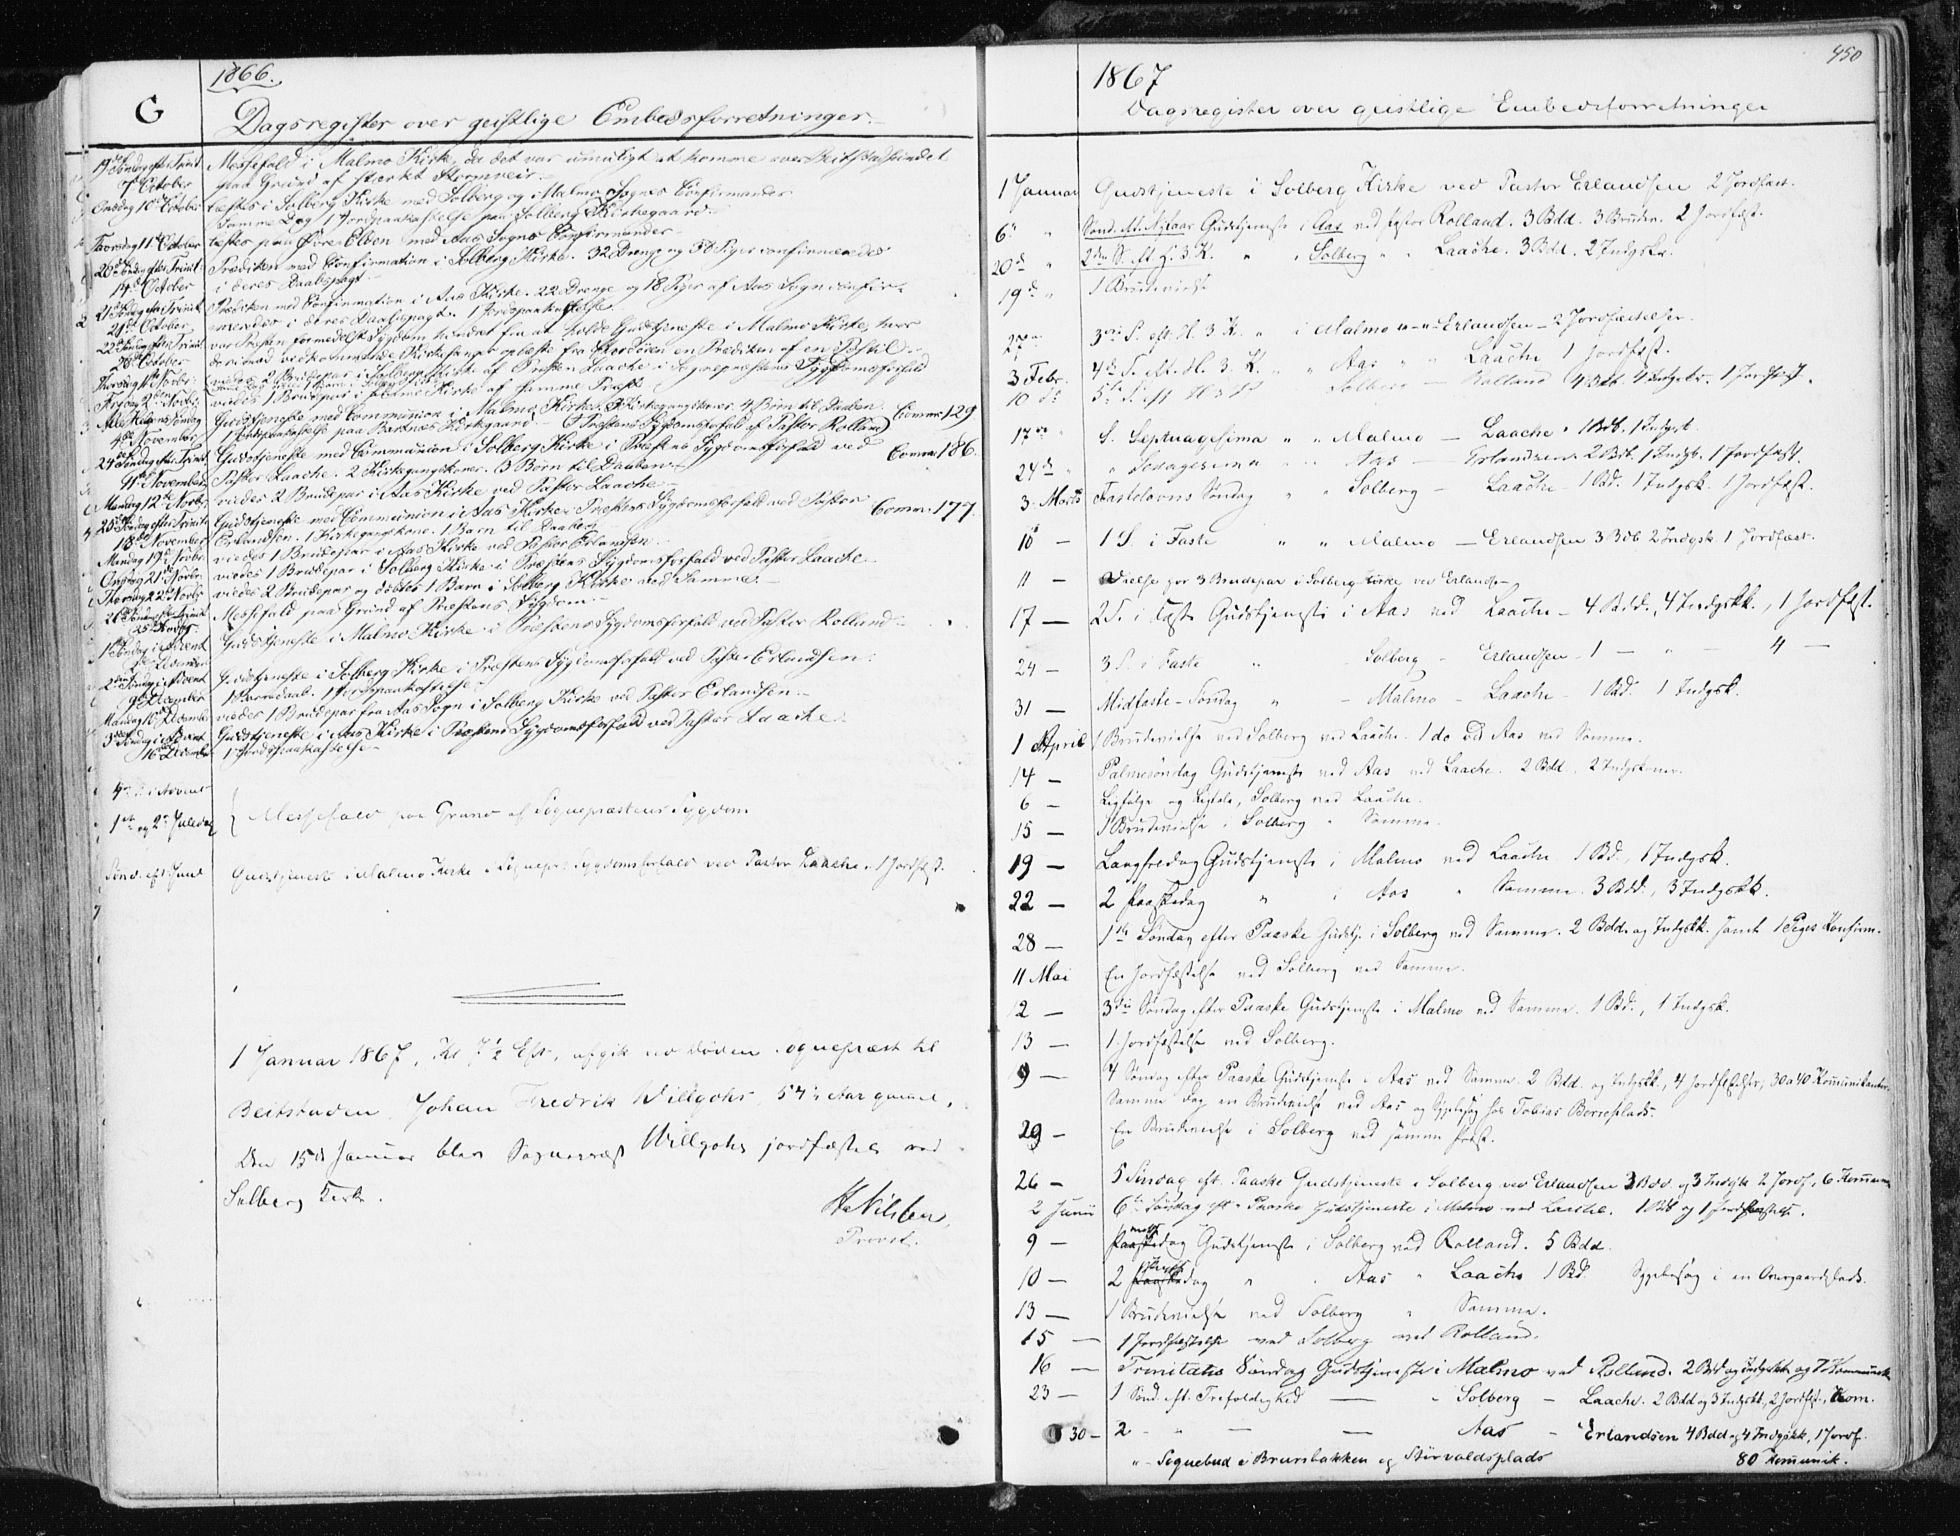 1866.
G
Dagsregister over geistlige Embedsforretninger.
19de Søndag efter Trinit. Messefald i Malmo Kirke, da det var umuligt at komme over Beitstadsundet
7de October paa Grund af stærkt Stormveir.
Onsdag 10de October læstes i Solberg Kirke med Solberg og Malmo Sognes Confirmander
Samme Dag 1 Jordpaakastelse paa Solberg Kirkegaard.
Torsdag 11te October læstes paa Øvre Elden med Aas Sogns Confirmander
20de Søndag efter Trinit. Prædiken med Confirmation i Solberg Kirke. 32 Drenge og Piger confirmeredes
14de October i deres Daabspagt.
21de Søndag efter Trinit. Prædiken med Confirmation i Aas Kirke. 22 Drenge og 18 Piger af Aas Sogn confir-
21de October meredes i deres Daabspagt. 1 Jordpaakastelse.
22de Søndag efter Trinit. var Præsten formedelst Sygdom hindret fra at holde Gudstjeneste i Malmo Kirke, hvor
28de October vedkommende Kirkesanger oplæste fra Chordøren en Prædiken af en Postil.
Torsdag 1ste Novbr. viedes 2 Brudepar i Solberg Kirke af Præsten Laache i Sognepræstens Sygdomsforfald
Fredag 2den Novbr. viedes 1 Brudepar i samme Kirke af samme Præst
Alle Helgens Søndag Gudstjeneste med Communion i Malmo Kirke. Kirkegangskoner. 4 Børn til Daaben. Comm. 129
4de November 1 Jordpaakastelse paa Bartnæs Kirkegaard. I Præstens Sygdomsforfald af Pastor Rolland
24de Søndag efter Trinit. Gudstjeneste med Communion i Solberg Kirke i Præstens Sygdomsforfald ved Comm. 186.
11te November Pastor Laache. 2 Kirkegangskoner. 3 Børn til Daaben.
Mandag 12te Novbr. viedes 2 Brudepar i Aas Kirke ved Pastor Laache
25de Søndag efter Trinit. Gudstjeneste med Communion i Aas Kirke i Præstens Sygdomsforfald ved Pastor Comm. 177.
18de November Erlandsen. 1 Kirkegangskone. 1 Barn til Daaben
Mandag 19de Novbr. viedes 1 Brudepar i Aas Kirke ved Pastor Erlandsen.
Onsdag 21de Novbr. viedes 1 Brudepar i Solberg Kirke i Præstens Sygdomsforfald ved Pastor Laache
Thorsdag 22de Novbr. viedes 2 Brudepar og døbtes 1 Barn i Solberg Kirke ved Samme.
26de Søndag efter Trinit. Messefald paa Grund af Præstens Sygdom
25de Novbr.
1ste Søndag i Advent Gudstjeneste i Malmo Kirke i Præstens Sygdomsforfald ved Pastor Rolland
2den Søndag i Advent Gudstjeneste i Solberg Kirke i Præstens Sygdomsforfald ved Pastor Erlandsen.
9de December 1 Barnedaab. 1 Jordpaakastelse.
Mandag 10de December viedes 1 Brudepar fra Aas Sogn i Solberg Kirke ved Pastor Erlandsen.
3die Søndag i Advent Gudstjeneste i Aas Kirke i Præstens Sygdomsforfald ved Pastor Laache
16de December 1 Jordpaakastelse
4de S. i Advent
1ste og 2den Juledag } Messefald paa Grund af Sognepræstens Sygdom
Sønd. eft. Juul Gudstjeneste i Malmo Kirke i Sognepr. Sygdomsforfald ved Pastor Laache. 1 Jordfæst.
1 Januar 1867, Kl 7½ Eft, afgik ved Døden Sognepræst til
Beitstaden, Johan Fredrik Willgohs, 54½ Aar gammel.
Den 15de Januar blev Sognepræst Willgohs jordfæstet ved
Solberg Kirke.
H Nilssen,
Provst.
450
1867
Dagsregister over geistlige Embedsforretninger
1 Januar Gudstjeneste i Solberg Kirke ved Pastor Erlandsen 2 Jordfæst.
6te " Sønd. eft. Nytaar Gudstjeneste i Aas ved Pastor Rolland. 3 Bdd. 3 Brudev. 2 Jordfæst.
20de " 2den S. eft. H. 3 K. " " Solberg " " Laache. 3 Bdd. 2 Indgskr.
19de " 1 Brudevielse
27de 3die S. eft. H. 3 K. " i Malmo " " Erlandsen - 2 Jordfæstelser.
3 Febr. 4de S. eft. H. 3. K. " " Aas " " Laache 1 Jordfæst.
10de 5te S. eft H 3 K Solberg — Rolland 4 Bdd. 4 Indgskr. 1 Jordfæst.
17de " S. Septuagesima " " Malmo — Laache 1 Bdb. 1 Indgsk.
24de " " Sexagesima " " Aas — Erlandsen 2 Bdb. 1 Indgsk. 1 Jordfæst.
3 Marts Fastelavns Søndag " " Solberg — Laache - 1 Bd. 1 Indgsk. 1 Jordfæst.
10 — 1 S. i Faste " " Malmo — Erlandsen 3 Bdb 2 Indgsk 1 Jordfæst.
11 — Vielse for 3 Brudepar i Solberg Kirke ved Erlandsen
17 — 2 S. i Faste Gudstjeneste i Aas ved Laache - 4 Bdd., 4 Indgskk., 1 Jordfæst.
24 — 3 S. i Faste " - Solberg - Erlandsen - 1 — " — 4 —
31 — Midfaste-Søndag " - Malmo - Laache - 1 Bd. 1 Indgsk.
1 April 1 Brudevielse ved Solberg ved Laache. 1 do ved Aas ved Samme.
14 — Palmesøndag Gudstjeneste ved Aas ved Laache. 2 Bdd. 2 Indgskoner.
6 — Ligfølge og Ligtale, Solberg ved Laache.
15 — 1 Brudevielse i Solberg " Samme.
19 — Langfredag Gudstjeneste i Malmo ved Laache. 1 Bd., 1 Indgsk.
22 — 2 Paaskedag " i Aas " Samme. 3 Bdd., 3 Indgskk.
28 — 1ste Søndag efter Paaske Gudstj. i Solberg ved Samme. 2 Bdd. og Indgskk. samt 1 Piges Konfirm.
11 Mai En Jordfæstelse ved Solberg ved Samme.
12 — 3die Søndag efter Paaske Gudstjeneste i Malmo ved Samme. 1 Bd., 1 Indgsk.
13 — 1 Jordfæstelse ved Solberg.
9 — 4 Søndag efter Paaske Gudstjeneste i Aas ved Samme. 2 Bdd. og Indgskk., 4 Jordfæstelser, 30 a 40 Kommunikanter.
Samme Dag en Brudevielse ved Aas og Sygebesøg hos Tobias
29 — En Brudevielse i Solberg ved samme Præst.
26 — 5 Søndag eft. Paaske Gudstjeneste i Solberg ved Erlandsen 3 Bdd og 3 Indgsk 2 Jordf, 6 Kommun
2 Junii 6te Søndag eft. Paaske Gudstjeneste i Malmo ved Laache. 1 Bd og 1 Jordfæstelse.
9 — Gudstjeneste i Solberg ved Rolland. 5 Bdd.
10 — 2 Pintsedag " " Aas " Laache 1 Bd. Sygebesøg i en
13 — 1 Brudevielse ved Solberg " Samme.
15 — 1 Jordfæstelse ved Solberg ved Rolland.
16 — Trinitatis Søndag Gudstjeneste i Malmo ved Rolland. 2 Bdd og Indgskk og 7 Kommunik
23 — 1 Sønd. eft. Trefoldighed — " Solberg — Laache. 2 Bdd og 3 Indgskk, 2 Jordfæst., Kom.
30 — 2 - " — — Aas — Erlandsen 4 Bdd og 4 Indgskk, 1 Jordf.
" - Sognebud i Brunsbakken og 80 Komunik.